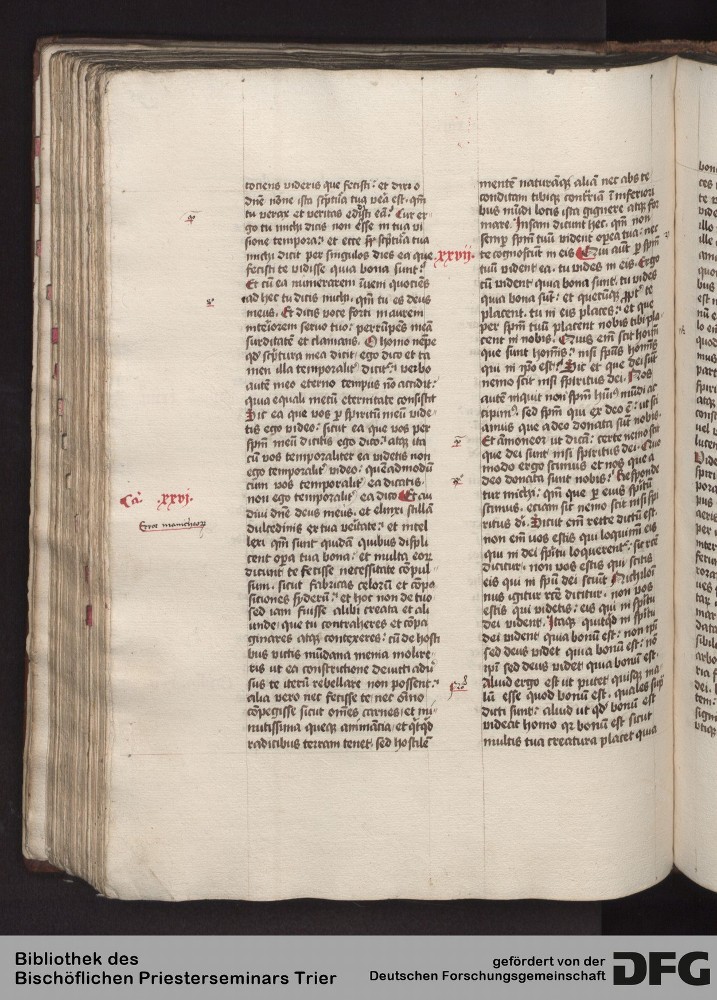 tociens videris que fecisti : et dixi o
dñe nõne ista scͥptũa tua vea est · qm̃
tu verax et veritas edidisti eã : Cur er-
go tu michi dicis non esse in tua vi
sione tempora : et ecce scͥptũa tua
michi dicit per singulos dies ea que
fecisti te vidisse quia bona sunt :
Et cũ ea numerarem ĩuem quociẽs
ad hec tu dicis michi · qm̃ tu es deus
meus · Et dicis voce forti in aurem
interiorem servo tuo : perrũpẽs meã
surditatẽ et clamans · O homo nẽpe
qd̛ scͥptura mea dicit · ego dico et ta
men illa temporalit̛ dicit : verbo
autẽ meo eterno tempus nõ accidit :
quia equali mecũ eternitate consistit
Sic ea que vos ꝑ spiritũ meũ vide
tis ego video : sicut ea que vos per
spm̃ meũ dicitis ego dico : atqꝫ ita
cũ vos temporaliter ea videtis non
ego temporalit̛ video : quẽadmodũ
cum vos temporalit̛ ea dicatis ·
non ego temporalit̛ ea dico Et au
Ca̛ xxvi ·
divi dñe deus meus · et elinxi stillã
Error manicheoꝝ
dulcedinis ex tua veritate : et intel
lexi qm̃ sunt quidã quibus displi
cent opa tua bona : et multa eoꝝ
dicunt te fecisse necessitate cõpul
sum · sicut fabricas celorũ et cõpo
siciones syderũ : et hoc non de tuo
sed iam fuisse alibi creata et ali
unde · que tu contraheres et cõpa
ginares atqꝫ contexeres : cũ de hosti
bus victis mũdana menia molire
ris ut ea constrictione devicti adũ
sus te iterũ rebellare non possent :
alia vero nec fecisse te nec oĩno
cõpegisse sicut om̃es carnes et mi
nutissima queqꝫ animãcia et qͥcqͥd
radicibus terram tenet · sed hostilẽ
mentẽ naturãqꝫ aliã nec abs te
conditam tibiqꝫ contrͣriã ĩ inferiori
bus mũdi locis ista gignere atqꝫ for
mare · Insani dicunt hec · qm̃ non
semꝑ spm̃ tuũ vident opea tua : nec
xxvii ·
te cognoscunt in eis Qui aũt ꝑ spm̃
tuũ vident ea · tu vides in eis · Ergo
cũ vident quia bona sunt · tu vides
quia bona sũt : et quecũqꝫ ꝓpt̛ te
placent · tu in eis places : et que
per spm̃ tuũ placent nobis tibi pla-
cent in nobis · Quis em̃ scit hoĩm
que sunt homĩs : nisi spũs homĩs
qui in ip̃o est : Sic et que dei sũt
nemo scit nisi spiritus dei · Nos
autẽ inquit non spm̃ huiꝰ mũdi ac
cipimꝰ · sed spm̃ qui ex deo ẽ : ut sci
amus que a deo donata sũt nobis ·
Et ãmoneor ut dicã : certe nemo scit
que dei sunt nisi spiritus dei · Quo
modo ergo scimus et nos que a
deo donata sunt nobis : Responde
tur michi : qm̃ que ꝑ eius spiritũ
scimus · eciam sic nemo scit nisi spi
ritus di · Sicut em̃ recte dictũ est ·
non em̃ vos estis qui loquimĩ eis
qui in dei spũtu loquerent̛ : sic rcẽ
dicitur · non vos estis qui scitis
eis qui in spũ dei sciũt · Nichilomi
nus igitur rcẽ dicitur · non vos
estis qui videtis : eis qui in spũtu
dei vident · Itaqꝫ quicqͥd in spũtu
dei vident quia bonũ est : non ip̃i
sed deus videt quia bonũ est : nõ
ip̃i sed deus videt quia bonũ est ·
Aliud ergo est ut putet quisqꝫ ma
lũ esse quod bonũ est · quales supͣ
dicti sunt : aliud ut qd̛ bonũ est
videat homo qꝛ bonũ est sicut
multis tua creatura placet quia
Bibliothek des
Bischöflichen Priesterseminars Trier
gefördert von der
Deutschen Forschungsgemeinschaft
DFG